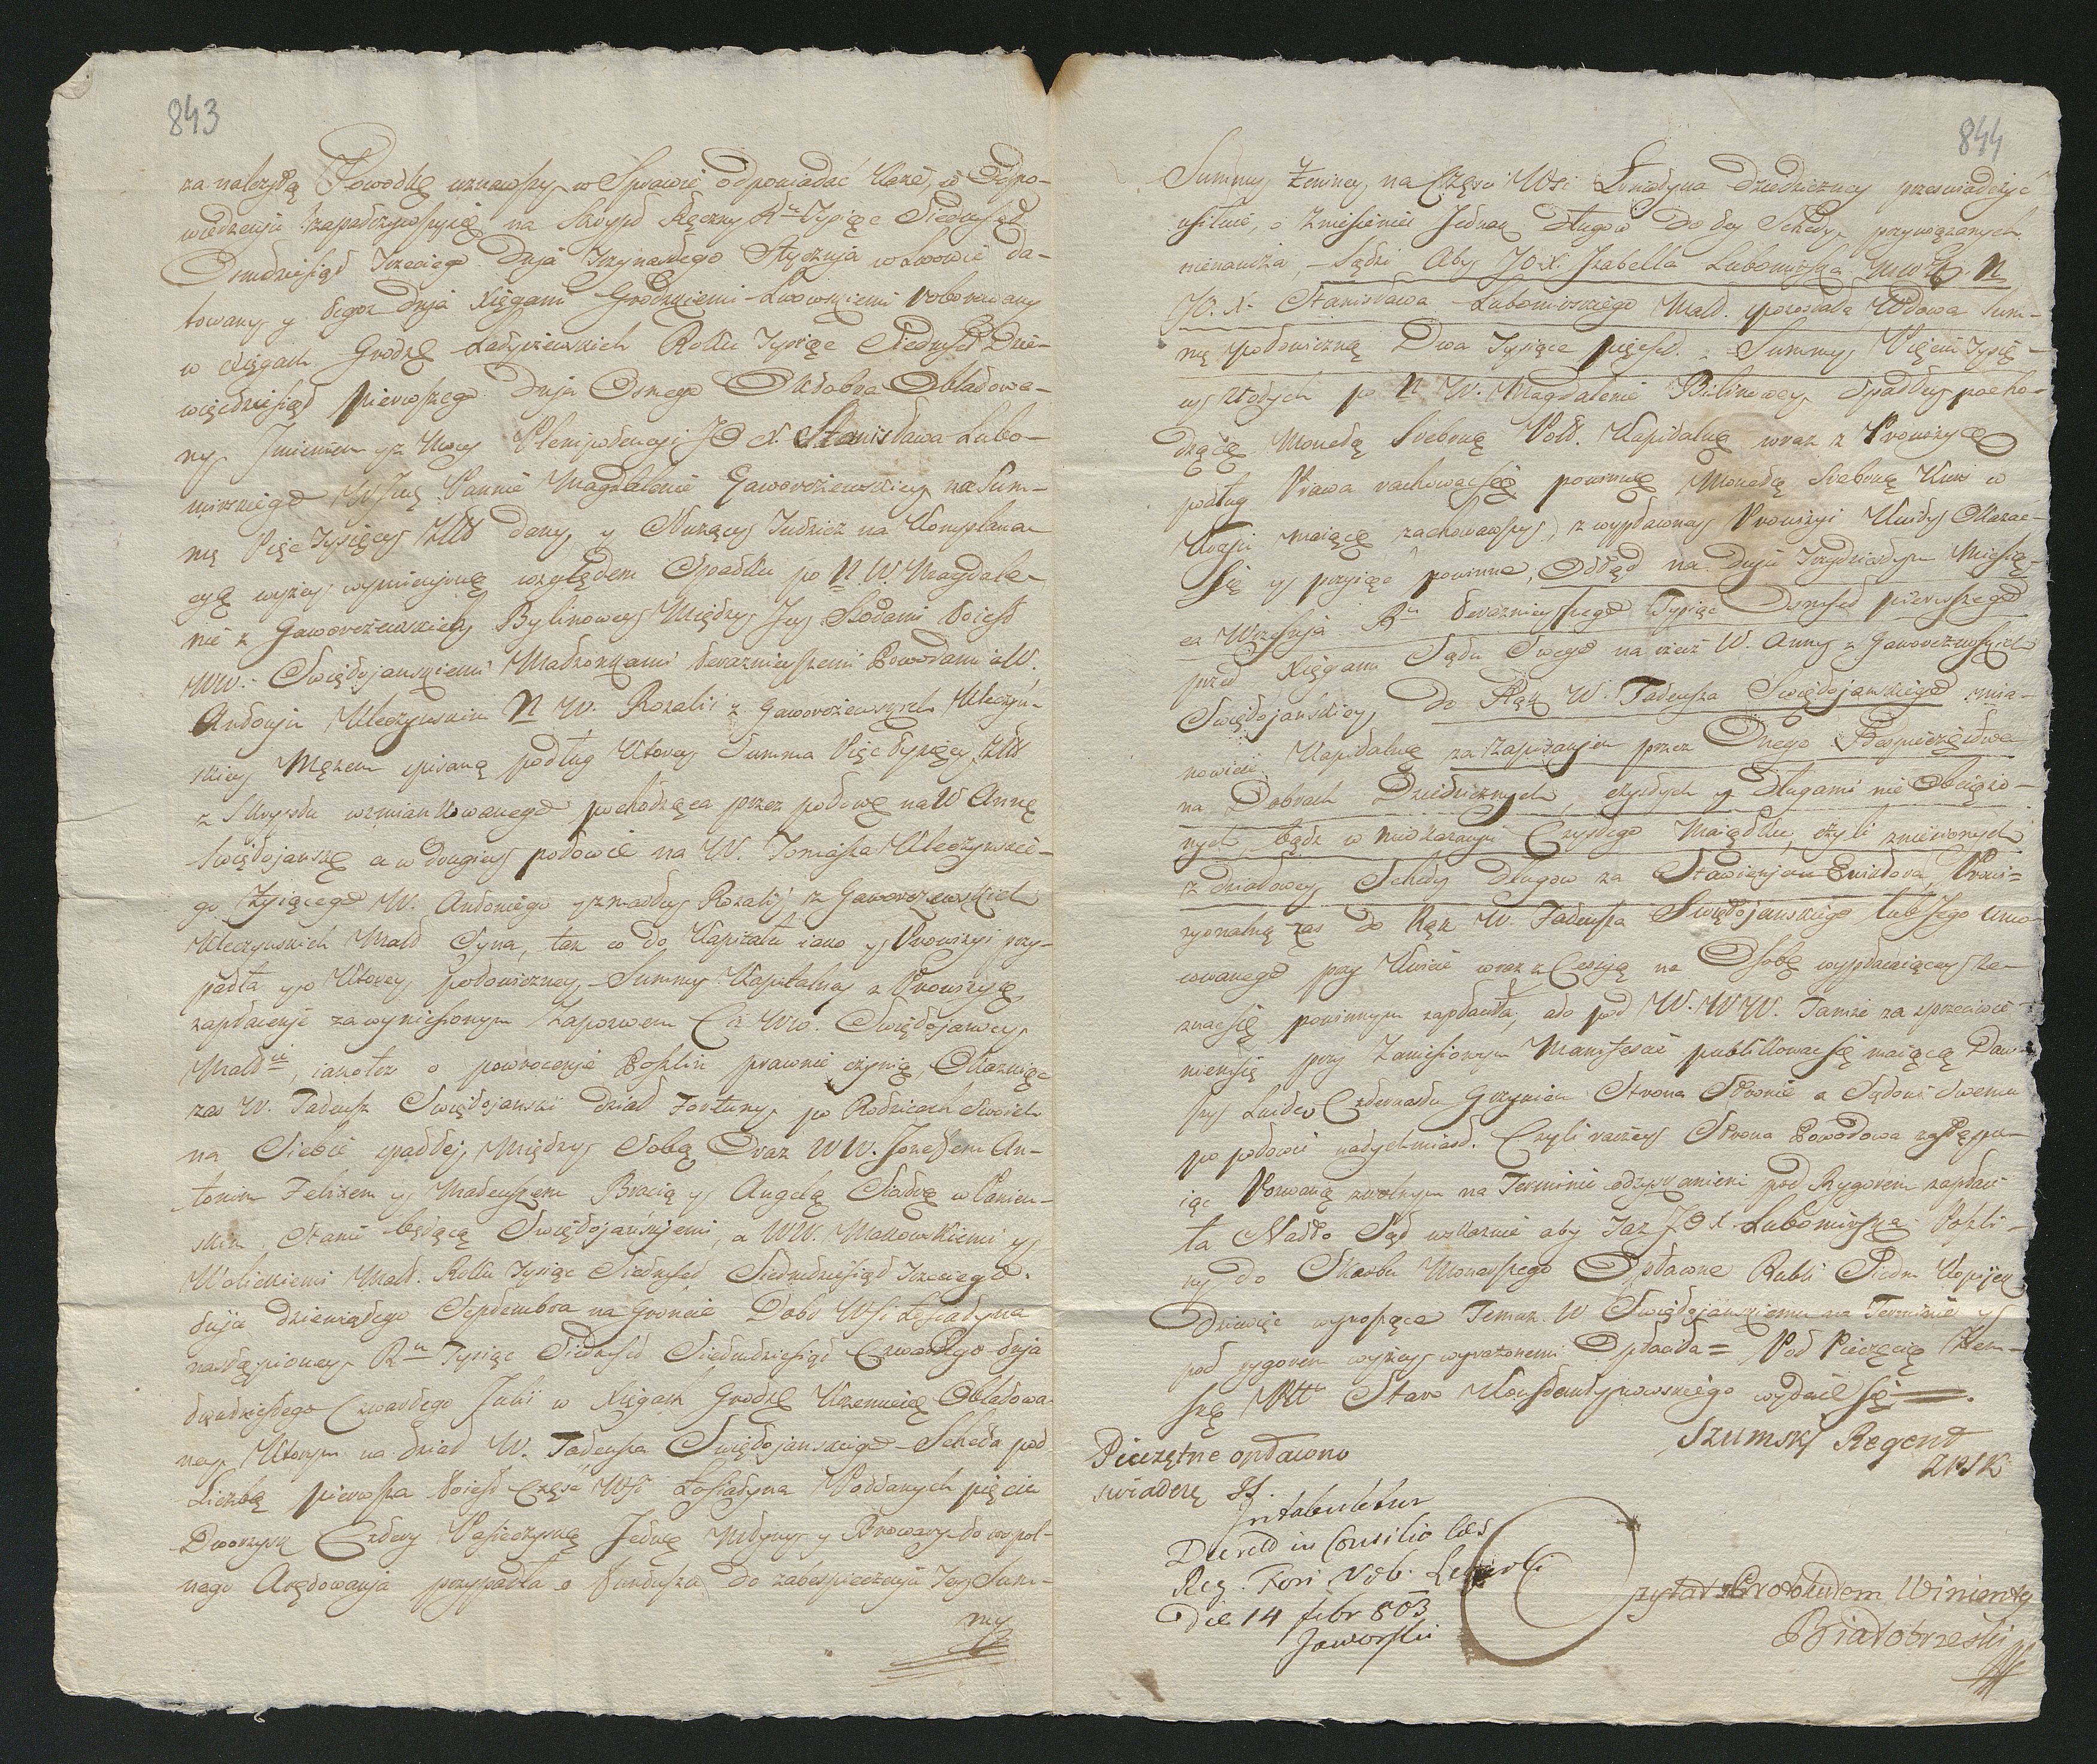 843
za należytą Powodkę uznawszy w Sprawie odpowiadać każe, w Odpo-
wiedzeniu zapatrzywszysię na Skrypt Ręczny Rku Tysiąc Siedmset
Osmdziesiąt Trzeciego Dnia Trzynastego Stycznia w Lwowie da-
towany y tegoż dnia Xięgami Grodzkiemi Lwowskiemi roborowany
w Xięgach Grodzk Latyczewskich Roku Tysiąc Siedmset Dzie-
więcdziesiąt pierwszego Dnia Osmego Oktobra Oblatowa-
ny Imieniem y z Mocy Plenipotencyi JO X. Stanisława Lubo-
mirskiego W Jmć Pannie Magdalenie Gaworożewskiey na Sum-
mę Pięc Tysięcy Złł dany, y Służący Tudzież na Komplana-
cyą wyżey wymienioną względem Spadku po N W. Magdale-
nie z Gaworożewskich Bylinowey Między Jey Stodami to iest
WW. Swiętojanskiemi Małżonkami teraznieyszemi Powodami a W.
Antonim Kleczynskim N W. Rozalii z Gaworożewskich Kleczyn-
skiey Mężem spisaną podług Ktorey Summa Pięc tysięcy Złł
z Skryptu wzmiankowanego pochodząca przez połowę na W Annę
Swiętojanskę a w drugiey połowie na W. Tomasza Kleczynskie-
go Żyiącego W. Antoniego y zmarłey Rozalij z Gaworożewskich
Kleczynskich Małż Syna, tak co do Kapitału iako y Prowizyi przy-
padła y o Ktorey połowiczney Summy Kapitalney z Prowizyą
zapłacenie za wyniesionym Zapozwem Ciż WW. Swiętojanscy
Małżie, iakoteż o powrocenie Poszlin prawnie czynią, Okazuiąc
zas W. Tadeusz Swiętojanski dział Fortuny po Rodzicach Swoich
na Siebie spadłey Między Sobą Oraz WW. Jozefem An-
tonim Felixem y Mateuszem Bracią y Angelą Siostrą w Panien-
skim Stanie będącą Swiętojańskiemi, a WW. Makowskiemi y
Wolickiemi Małż. Roku Tysiąc Siedmset Siedmdziesiąt Trzeciego
dnia dziewiątego Septembra na Groncie Dobr Wsi Łosiatyna
nastąpioney Rku Tysiąc Siedmset Siedmdziesiąt Czwartego dnia
dwudziestego Czwartego Julii w Xięgach Grodzk Krzemienieckich Oblatowa-
ney Ktorym na dział W. Tadeusza Swiętojanskiego Scheda pod
Liczbą pierwsza to iest Część Wsi Łosiatyna Poddanych pięciu
Dworzysk Cztery Pasieczyskę Jednę Młyny y Browary do wspol-
nego Arędowania przypadła o fundusza do zabespieczenia Tey Sum-
my
844
Summy Żoniney na Częsci Wsi Łosiatyna Dziedziczney przeswiadczyć
usiłuie, o Zniesieniu Jednak długow Do tey Schedy przywiązanych
nienamża, Sądzi Aby JO X. Izabella Lubomirska
JO. X. Stanisława Lubomirskiego Małż. pozostała Wdowa Sum-
mę połowiczną Dwa Tysiące pięcset. z Summy Pięciu Tysię-
cy złotych po N W. Magdalenie Bilinowey spadłey pocho-
dzącą Monetą Srebrną Pols. Kapitalną wraz z Prowizyą
podług Prawa rachowaćsię powinną Monetą Srebrną Kurs w
Kraju maiącą zachowawszy z wypłaconey Prowizyi Kwity Okazać
Się y przyiąc powinna, Odtąd na dniu Trzydziestym Miesią-
ca Wrzesnia Rku teraznieyszego Tysiąc Osmset pierwszego
przed Xięgami Sądu Swego na rzecz W. Anny z Gaworożewskich
Swiętojanskiey, do Rąk W. Tadeusza Swiętojanskiego mia-
nowicie Kapitalną za Zapisaniem przez Onego Bespieczeństwa
na Dobrach Dziedzicznych, czystych y Długami nie Obciążo-
nych, bądz w niedokazaniu Czystego Maiątku, czyli zniesionych
z działowey Schedy długow za Stawieniem Ewiktora, Prowi-
zyonalną zas do Rąk W. Tadeusza Swiętojanskiego lub Jego umo-
cowanego przy Kwicie wraz z Cessyą na Osobę wypłacaiącey ze-
znaćsię powinnym zapłaciła, ato pod W. WW. Tamże za sprzeciwie-
niemsię przy Zaniesionym Manifescie publikowaćsię maiącą Daw-
szy Luidor Czternastu Grzywien Strona Stronie a Sądowi Swemu
po połowie natychmiast. Czyli raczey Strona Powodowa zastępu-
iąc Pozwaną zwolnym na Terminie odzyskaniem pod Rygorem zapłaci-
ła Nadto Sąd wskazuie aby Taż JO X Lubomirska Poszli-
ny do Skarbu Monarszego Opłacone Rubli Siedm Kopijek
Dziewięć wynoszące Temuż W Swiętojanskiemu na Terminie y
pod rygorem wyżey wyrażonemi Opłaciła = Pod Pieczęcią Ziem-
ską Pttu Staro Konstantynowskiego wydać się.
Szumsky Regent
ZPSK
Pieczętne opłacono
swiadczę
Intabuletur
Decretd in Consilio Caes
Reg. Fori Nob. Leopoli
Die 14 febr 803
Jaworski
Czytał z Protokułem Wincenty
Białobrzeski